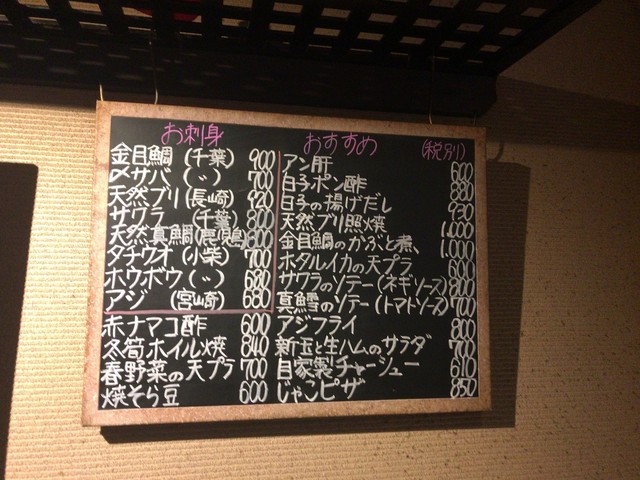 お刺身
金目鯛 (千葉) 900
〆サバ (〃) 700
天然ブリ (長崎) 920
サワラ (千葉) 800
天然真鯛 (鹿児島) 800
タチウオ (小柴) 700
ホウボウ (〃) 680
アジ (宮崎) 680
赤ナマコ酢 600
冬筍ホイル焼 840
春野菜の天プラ 700
焼そら豆 600
おすすめ (税別)
アン肝 600
白子ポン酢 880
白子の揚げだし 930
天然ブリ照焼 1,000
金目鯛のかぶと煮、 1,000
ホタルイカの天プラ 600
サワラのソテー (ネギソース) 800
真鱈のソテー (トマトソース) 700
アジフライ 800
新玉と生ハムのサラダ 700
自家製チャーシュー 610
じゃこピザ 850